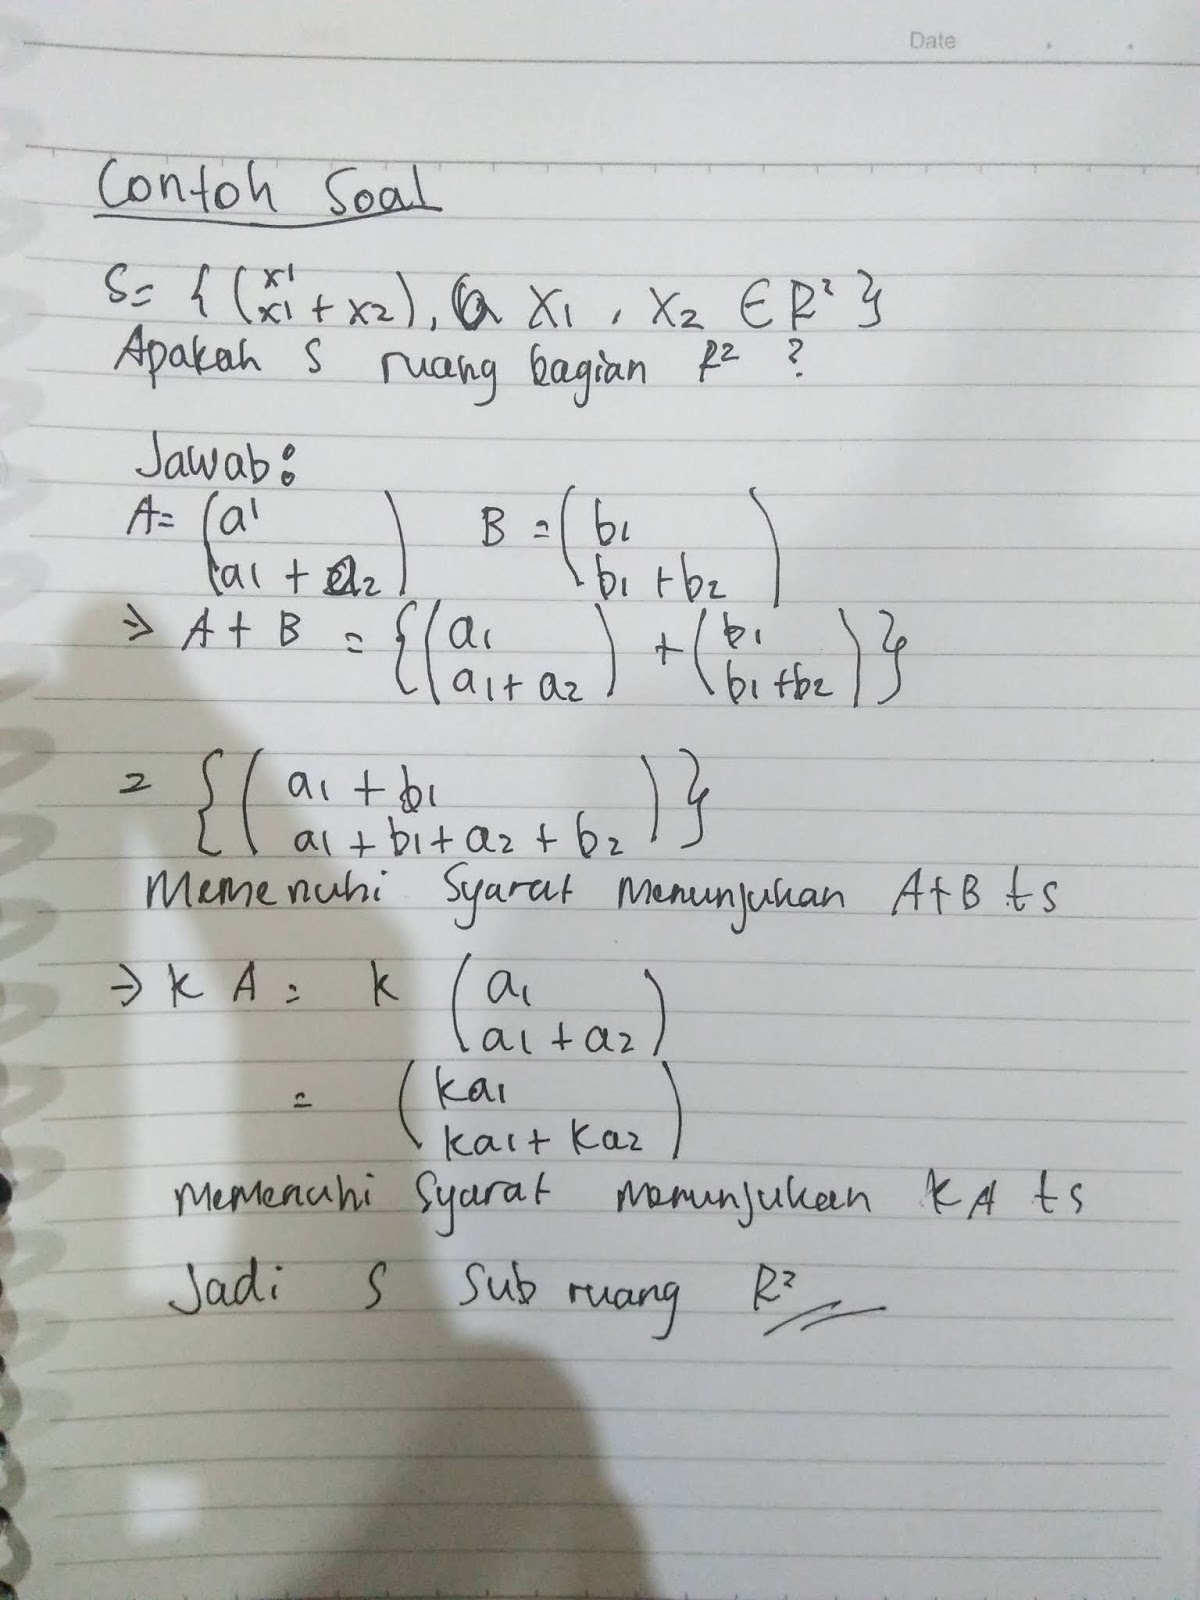 Date
Contoh Soal
S = { (x1
x1 + x2), x1, x2 ∈ R² }
Apakah S ruang bagian R² ?
Jawab:
A = (a1
a1 + a2) B = (b1
b1 + b2)
⇒ A + B = {(a1
a1 + a2) + (b1
b1 + b2)}
= {(a1 + b1
a1 + b1 + a2 + b2)}
Memenuhi Syarat Menunjukan A+B ts
→ k A = k (a1
a1 + a2)
= (ka1
ka1 + ka2)
Memenuhi Syarat menunjukan kA ts
Jadi S Sub ruang R²